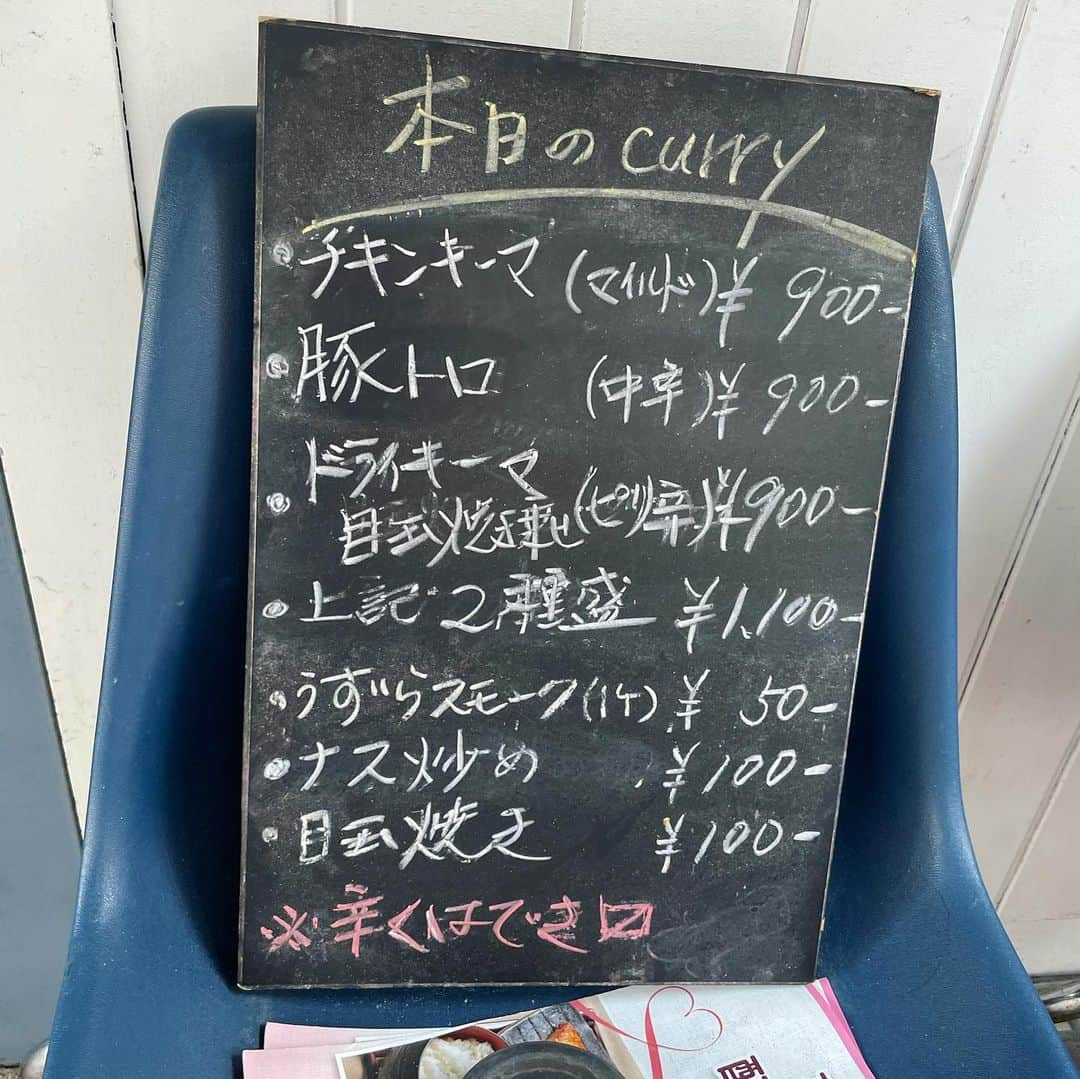 本日のcurry
・チキンキーマ (マイルド) ¥900-
・豚トロ (中辛) ¥900-
・ドライキーマ
目玉焼き乗せ (ピリ辛) ¥900-
・上記2種盛 ¥1,100-
・うずらスモーク(1ケ) ¥50-
・ナス炒め ¥100-
・目玉焼き ¥100-
※辛くはでき〼